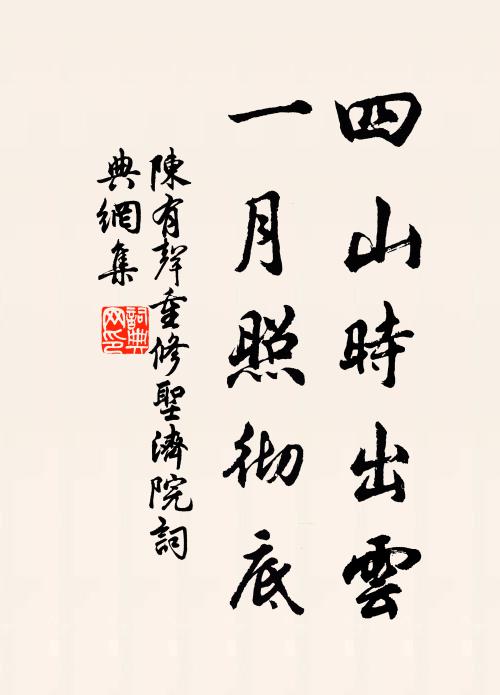 四山時出雲
一月照彻底
陳有聲重修聖濟院詞
典網集
詞典
网印